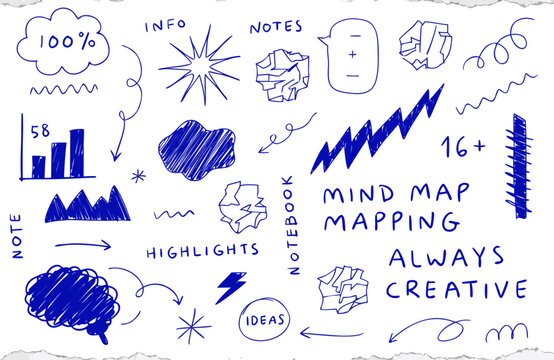 100%
INFO
NOTES
–
+
–
58
16+
NOTE
NOTEBOOK
MIND MAP
MAPPING
HIGHLIGHTS
ALWAYS
CREATIVE
IDEAS